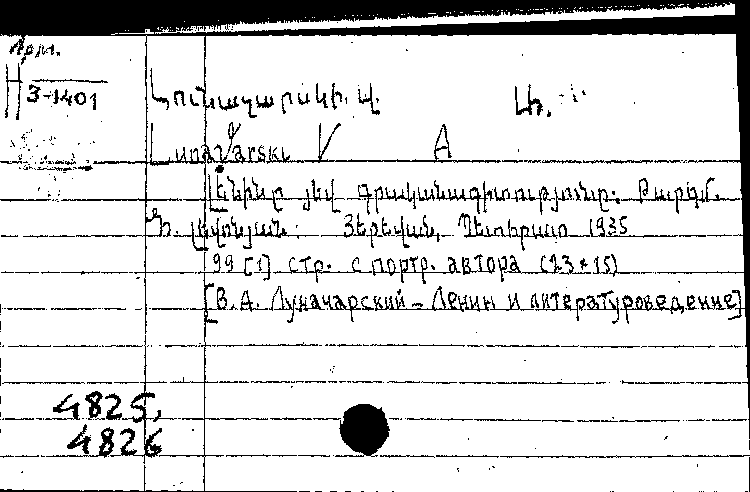 Арм.
Н
3-1401
Լունաչարսկի. Վ. Ա.
Lunačarski V A
Լենինը յեվ գրականագիտությունը: Թարգմ.
Ն. Լևոնյան: Յերեվան, Պետհրատ 1935
99 [1] стр. с портр. автора (23*15)
[В.А. Луначарский - Ленин и литературоведение]
4825,
4826